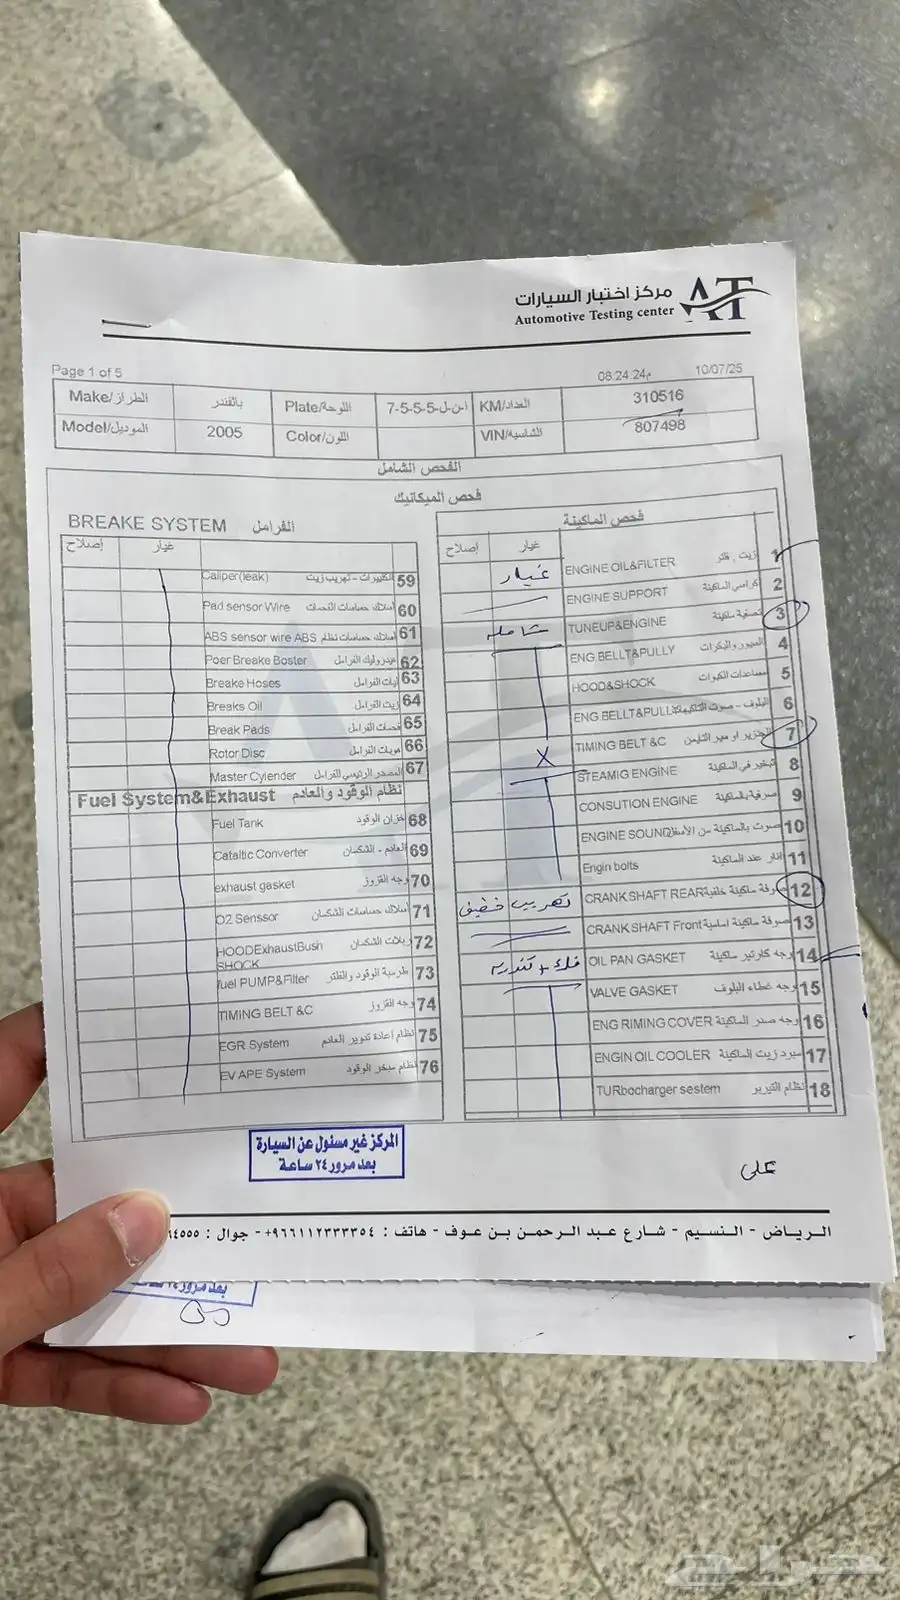 مركز اختبار السيارات
Automotive Testing center
Page 1 of 5
08:24:24م 10/07/25
Make/الطراز باثفندر Plate/اللوحة ا-ن-ل-5-5-5-7 KM/العداد 310516
Model/الموديل 2005 Color/اللون VIN/الشاسية 807498
الفحص الشامل
فحص الميكانيك
فحص الماكينة
إصلاح غيار
1 زيت , فلتر ENGINE OIL&FILTER غيار
2 كراسي الماكينة ENGINE SUPPORT
3 تصفية ماكينة TUNEUP&ENGINE شامله
4 السيور والبكرات ENG BELLT&PULLY
5 مساعدات الكبوت HOOD&SHOCK
6 البلوف - صوت التاكيهات ENG BELLT&PULL
7 الجنزير او سير التايمن TIMING BELT &C X
8 تبخير في الماكينة STEAMIG ENGINE
9 صرفية بالماكينة CONSUTION ENGINE
10 صوت بالماكينة من الأسفل ENGINE SOUND
11 اثار عند الماكينة Engin bolts
12 صوفة ماكينة خلفية CRANK SHAFT REAR تهريب خفيف
13 صوفة ماكينة اساسية CRANK SHAFT Front
14 وجه كارتير ماكينة OIL PAN GASKET
15 وجه غطاء البلوف VALVE GASKET
16 وجه صدر الماكينة ENG RIMING COVER
17 مبرد زيت الماكينة ENGIN OIL COOLER
18 نظام التيربو TURbocharger sestem
BREAKE SYSTEM الفرامل
إصلاح غيار
59 الكليبرات - تهريب زيت Caliper(leak)
60 اسلاك حساسات القحصات Pad sensor Wire
61 اسلاك حساسات نظام ABS ABS sensor wire
62 هيدروليك الفرامل Poer Breake Boster
63 ليات الفرامل Breake Hoses
64 زيت الفرامل Breaks Oil
65 قحصات الفرامل Break Pads
66 هوبات الفرامل Rotor Disc
67 المصدر الرئيسي الفرامل Master Cylender
Fuel System&Exhaust نظام الوقود والعادم
68 خزان الوقود Fuel Tank
69 العادم - الشكمان Cataltic Converter
70 وجه القزوز exhaust gasket
71 اسلاك حساسات الشكمان O2 Senssor
72 ربلات الشكمان HOODExhaustBush
SHOCK
73 طرمبة الوقود والفلتر fuel PUMP&Filter
74 وجه القزوز TIMING BELT &C
75 نظام اعادة تدوير العادم EGR System
76 نظام مبخر الوقود EV APE System
المركز غير مسئول عن السيارة
بعد مرور ٢٤ ساعة
علي
الرياض - النسيم - شارع عبد الرحمن بن عوف - هاتف : ٩٦٦١١٢٣٣٣٣٥٤+ - جوال :
بعد مرور ٢٤ ساعة
حراج